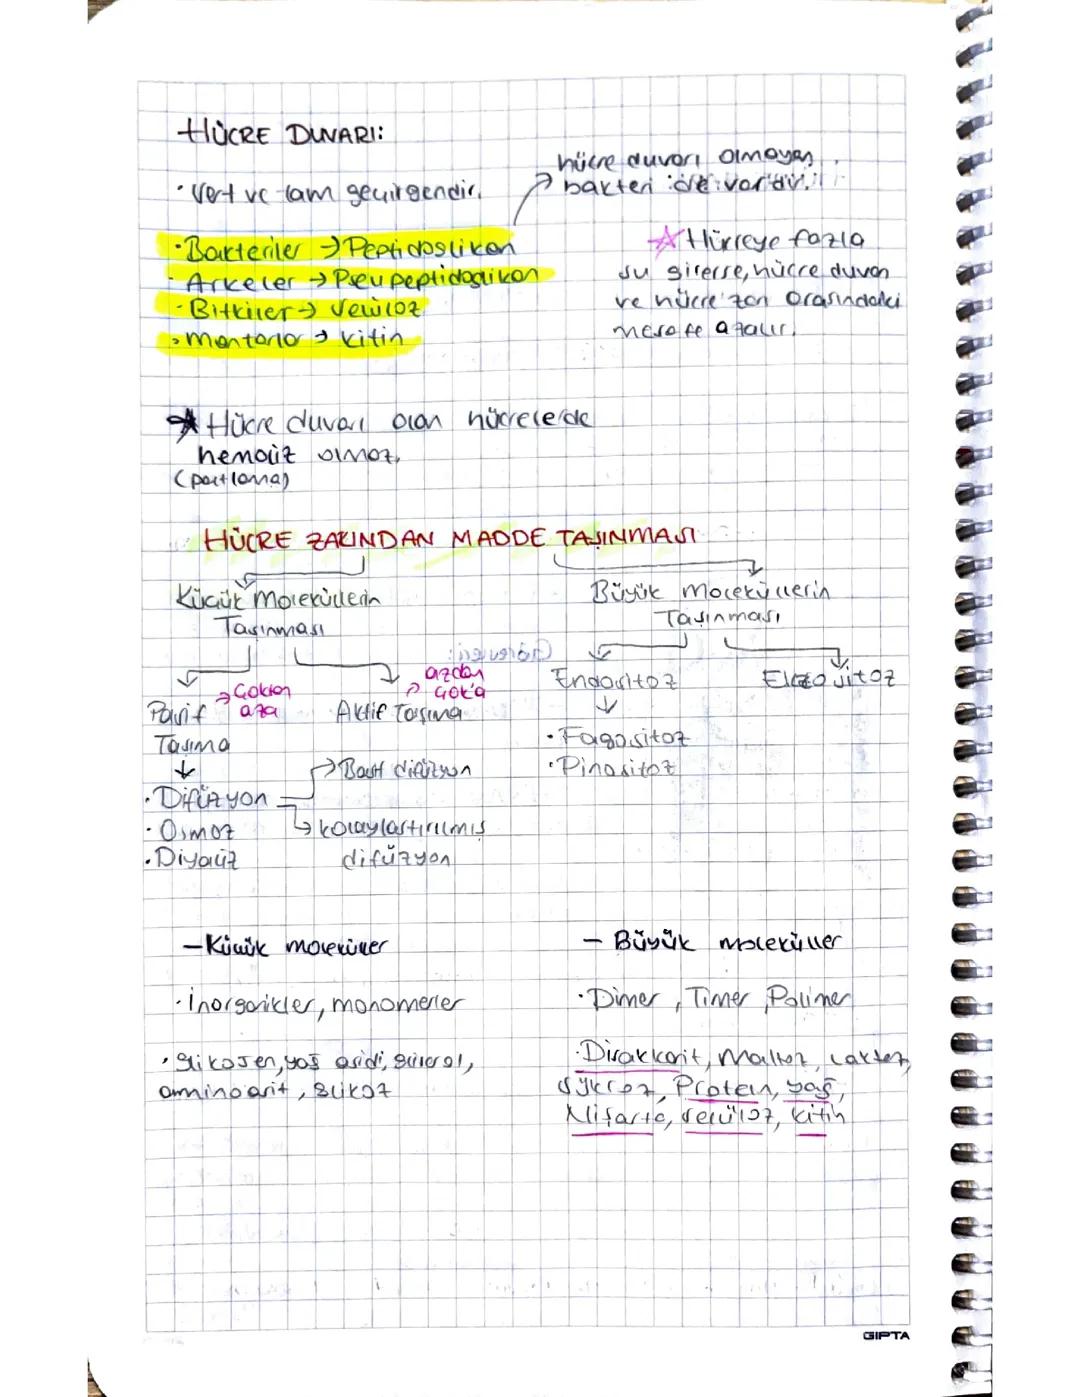 HÜCRE DUVARI:
• Sert ve tam geçirgendir.
hücre duvarı olmayan
bakteri de vardır.
• Bakteriler → Peptidoglikan
• Arkeler → Pseupeptidoglikan
• Bitkiler → Selüloz
• Mantarlar → kitin
☆ Hücreye fazla
su girerse, hücre duvarı
ve hücre zarı arasındaki
mesafe azalır.
★ Hücre duvarı olan hücrelerde
hemoliz olmaz.
(patlama)
HÜCRE ZARINDAN MADDE TAŞINMASI
Küçük Moleküllerin
Taşınması
Büyük moleküllerin
Taşınması
Pasif
Taşıma
→ Çoktan
aza
Aktif Taşıma
→ azdan
çok'a
Endositoz
Ekzositoz
• Fagositoz
• Pinositoz
• Difüzyon
• Osmoz
• Diyaliz
→ Basit difüzyon
↳ kolaylaştırılmış
difüzyon
– Küçük moleküller
– Büyük moleküller
• İnorganikler, monomerler
• Dimer, Timer, Polimer
• glikojen, yağ asidi, gliserol,
aminoasit, glikoz
• Disakkarit, Maltoz, Laktoz,
sükroz, Protein, yağ,
Nişasta, selüloz, kitin
GIPTA